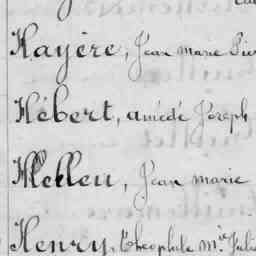 Hayère, Jean marie
Hébert, amédé Joseph
Helleu, Jean marie
Henry, théophile m.ie